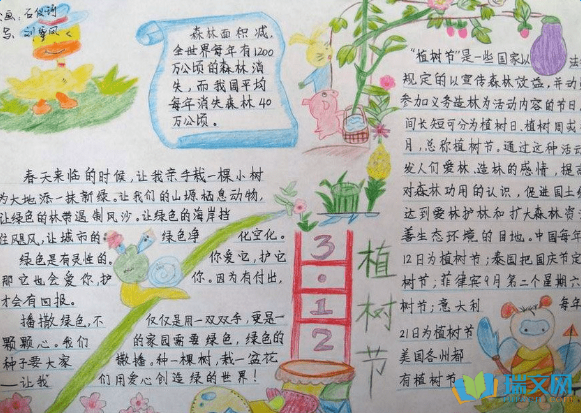 森林面积减,
全世界每年有1200
万公顷的森林消
失,而我国平均
每年消失森林40
万公顷。
"植树节"是一些国家以法
规定的以宣传森林效益,并动
参加义务造林为活动内容的节日
间长短可分为植树日、植树周
月,总称植树节。通过这种活
发人们爱林、造林的感情,提高
对森林功用的认识,促进国土
达到爱林护林和扩大森林资
善生态环境的目地。中国每年
12日为植树节;泰国把国庆节定
树节;菲律宾9月第二个星期六
树节;意大利 每年
21日为植树节
美国各州都
有植树节
春天来临的时候,让我亲手栽一棵小树
为大地添一抹新绿。让我们的山塬栖息动物,
让绿色的林带遏制风沙。让绿色的海岸挡
住飓风,让城市的 绿色净 化空化。
绿色是有灵性的。 你爱它,护它
那它也会爱你,护 你。因为有付出,
才会有回报。
播撒绿色,不 仅仅是用一双双手,更是一
颗颗心。我们 的家园需要绿色,绿色的
种子要大家 撒播。种一棵树,栽一盆花
—让我 们用爱心创造绿的世界!
3·12
植树节
瑞文网